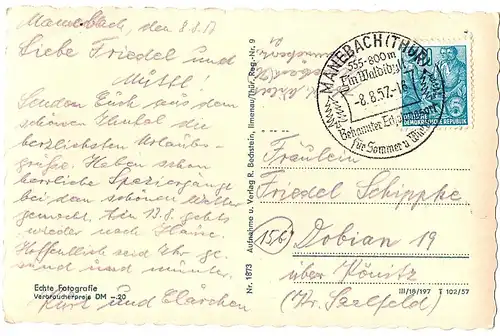 Manebach, den 8.8.57
Liebe Friedel und
Mutti!
Senden Euch aus dem
schönen Ilmtal die
herzlichsten Urlaubs-
grüße. Haben schon
herrliche Spaziergänge
bei dem schönen Wetter
gemacht. Am 13.8. gehts
wieder nach Hause.
Hoffentlich seid Ihr ge-
sund und munter.
Kurt und Klärchen
Echte Fotografie
Verbraucherpreis DM -.20
Nr. 1873 Aufnahme u. Verlag R. Bechstein, Ilmenau/Thür., Reg.-Nr. 9
MANEBACH (THÜR)
555-800m
Ein Waldidyll
-8.8.57.-18
Bekannter Erholungsort
für Sommer u. Winter
DEUTSCHE
DEMOKRATISCHE REPUBLIK
Fräulein
Friedel Schippke
(15b) Dobian 19
über Könitz
(Kr. Saalfeld)
III/18/197 T 102/57